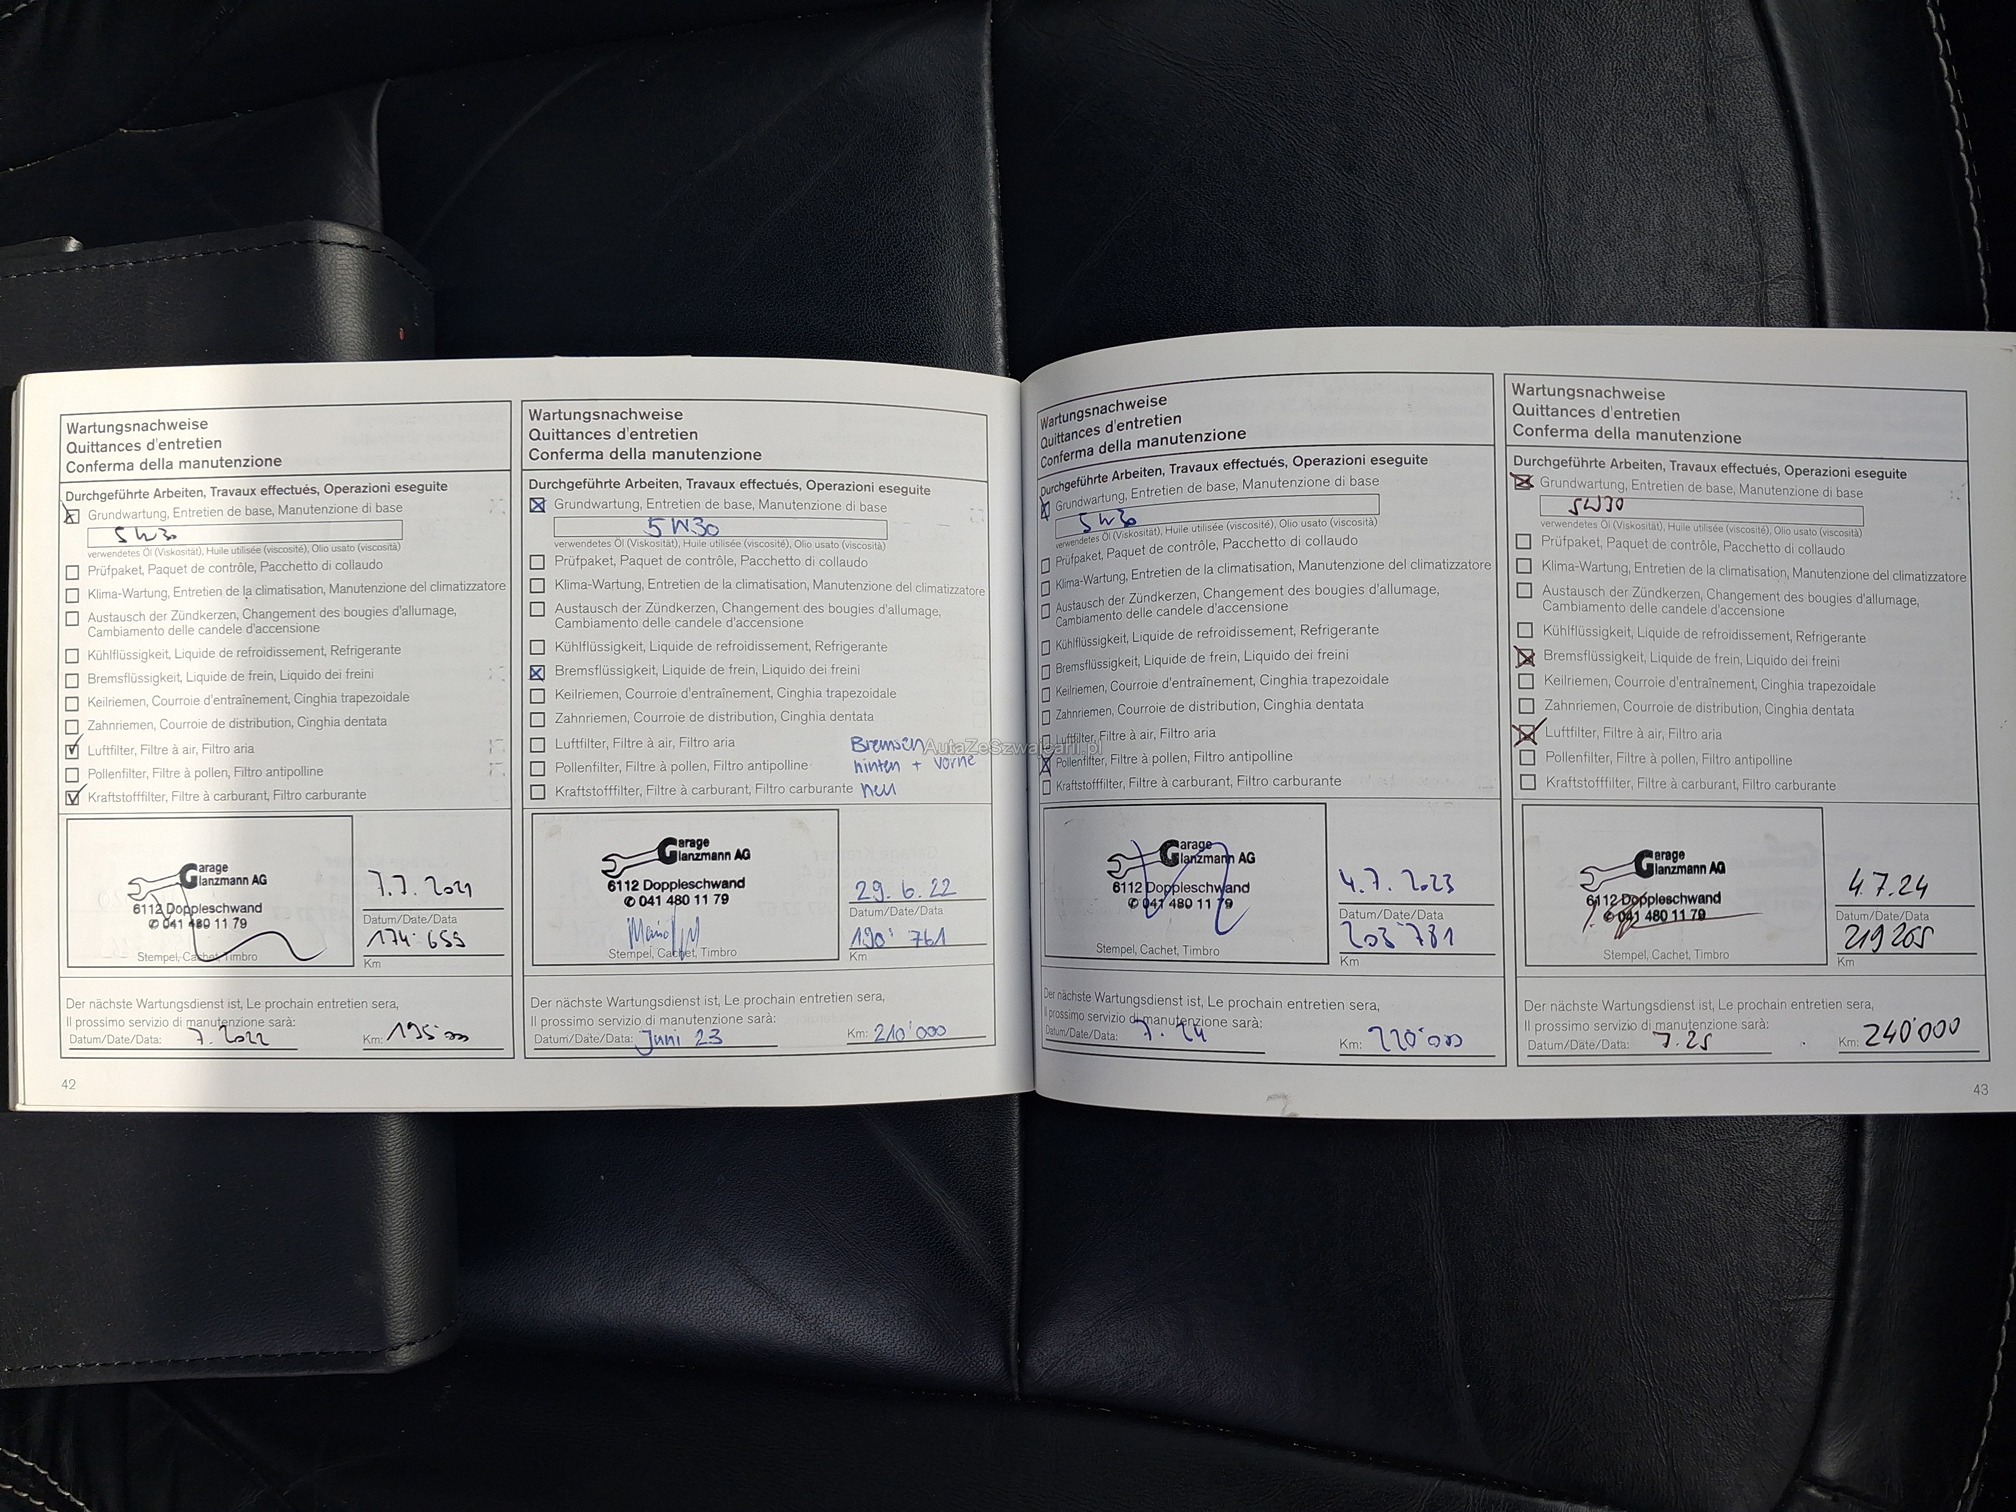 Wartungsnachweise
Quittances d'entretien
Conferma della manutenzione
Durchgeführte Arbeiten, Travaux effectués, Operazioni eseguite
Grundwartung, Entretien de base, Manutenzione di base
5W30
verwendetes Öl (Viskosität), Huile utilisée (viscosité), Olio usato (viscosità)
Prüfpaket, Paquet de contrôle, Pacchetto di collaudo
Klima-Wartung, Entretien de la climatisation, Manutenzione del climatizzatore
Austausch der Zündkerzen, Changement des bougies d'allumage,
Cambiamento delle candele d'accensione
Kühlflüssigkeit, Liquide de refroidissement, Refrigerante
Bremsflüssigkeit, Liquide de frein, Liquido dei freini
Keilriemen, Courroie d'entraînement, Cinghia trapezoidale
Zahnriemen, Courroie de distribution, Cinghia dentata
Luftfilter, Filtre à air, Filtro aria
Pollenfilter, Filtre à pollen, Filtro antipolline
Kraftstofffilter, Filtre à carburant, Filtro carburante
Garage
Glanzmann AG
6112 Doppleschwand
✆ 041 480 11 79
Stempel, Cachet, Timbro
7.7.2021
Datum/Date/Data
174'655
Km
Der nächste Wartungsdienst ist, Le prochain entretien sera,
Il prossimo servizio di manutenzione sarà:
Datum/Date/Data: 7.2022 Km: 195'000
42
Wartungsnachweise
Quittances d'entretien
Conferma della manutenzione
Durchgeführte Arbeiten, Travaux effectués, Operazioni eseguite
Grundwartung, Entretien de base, Manutenzione di base
5W30
verwendetes Öl (Viskosität), Huile utilisée (viscosité), Olio usato (viscosità)
Prüfpaket, Paquet de contrôle, Pacchetto di collaudo
Klima-Wartung, Entretien de la climatisation, Manutenzione del climatizzatore
Austausch der Zündkerzen, Changement des bougies d'allumage,
Cambiamento delle candele d'accensione
Kühlflüssigkeit, Liquide de refroidissement, Refrigerante
Bremsflüssigkeit, Liquide de frein, Liquido dei freini
Keilriemen, Courroie d'entraînement, Cinghia trapezoidale
Zahnriemen, Courroie de distribution, Cinghia dentata
Luftfilter, Filtre à air, Filtro aria Bremsen
Pollenfilter, Filtre à pollen, Filtro antipolline hinten + vorne
Kraftstofffilter, Filtre à carburant, Filtro carburante neu
AutaZeSzwajcarii.pl
Garage
Glanzmann AG
6112 Doppleschwand
✆ 041 480 11 79
Stempel, Cachet, Timbro
29.6.22
Datum/Date/Data
190'761
Km
Der nächste Wartungsdienst ist, Le prochain entretien sera,
Il prossimo servizio di manutenzione sarà:
Datum/Date/Data: Juni 23 Km: 210'000
Wartungsnachweise
Quittances d'entretien
Conferma della manutenzione
Durchgeführte Arbeiten, Travaux effectués, Operazioni eseguite
Grundwartung, Entretien de base, Manutenzione di base
5W30
verwendetes Öl (Viskosität), Huile utilisée (viscosité), Olio usato (viscosità)
Prüfpaket, Paquet de contrôle, Pacchetto di collaudo
Klima-Wartung, Entretien de la climatisation, Manutenzione del climatizzatore
Austausch der Zündkerzen, Changement des bougies d'allumage,
Cambiamento delle candele d'accensione
Kühlflüssigkeit, Liquide de refroidissement, Refrigerante
Bremsflüssigkeit, Liquide de frein, Liquido dei freini
Keilriemen, Courroie d'entraînement, Cinghia trapezoidale
Zahnriemen, Courroie de distribution, Cinghia dentata
Luftfilter, Filtre à air, Filtro aria
Pollenfilter, Filtre à pollen, Filtro antipolline
Kraftstofffilter, Filtre à carburant, Filtro carburante
Garage
Glanzmann AG
6112 Doppleschwand
✆ 041 480 11 79
Stempel, Cachet, Timbro
4.7.2023
Datum/Date/Data
203'781
Km
Der nächste Wartungsdienst ist, Le prochain entretien sera,
Il prossimo servizio di manutenzione sarà:
Datum/Date/Data: 7.24 Km: 220'000
Wartungsnachweise
Quittances d'entretien
Conferma della manutenzione
Durchgeführte Arbeiten, Travaux effectués, Operazioni eseguite
Grundwartung, Entretien de base, Manutenzione di base
5W30
verwendetes Öl (Viskosität), Huile utilisée (viscosité), Olio usato (viscosità)
Prüfpaket, Paquet de contrôle, Pacchetto di collaudo
Klima-Wartung, Entretien de la climatisation, Manutenzione del climatizzatore
Austausch der Zündkerzen, Changement des bougies d'allumage,
Cambiamento delle candele d'accensione
Kühlflüssigkeit, Liquide de refroidissement, Refrigerante
Bremsflüssigkeit, Liquide de frein, Liquido dei freini
Keilriemen, Courroie d'entraînement, Cinghia trapezoidale
Zahnriemen, Courroie de distribution, Cinghia dentata
Luftfilter, Filtre à air, Filtro aria
Pollenfilter, Filtre à pollen, Filtro antipolline
Kraftstofffilter, Filtre à carburant, Filtro carburante
Garage
Glanzmann AG
6112 Doppleschwand
✆ 041 480 11 79
Stempel, Cachet, Timbro
4.7.24
Datum/Date/Data
219265
Km
Der nächste Wartungsdienst ist, Le prochain entretien sera,
Il prossimo servizio di manutenzione sarà:
Datum/Date/Data: 7.25 Km: 240'000
43